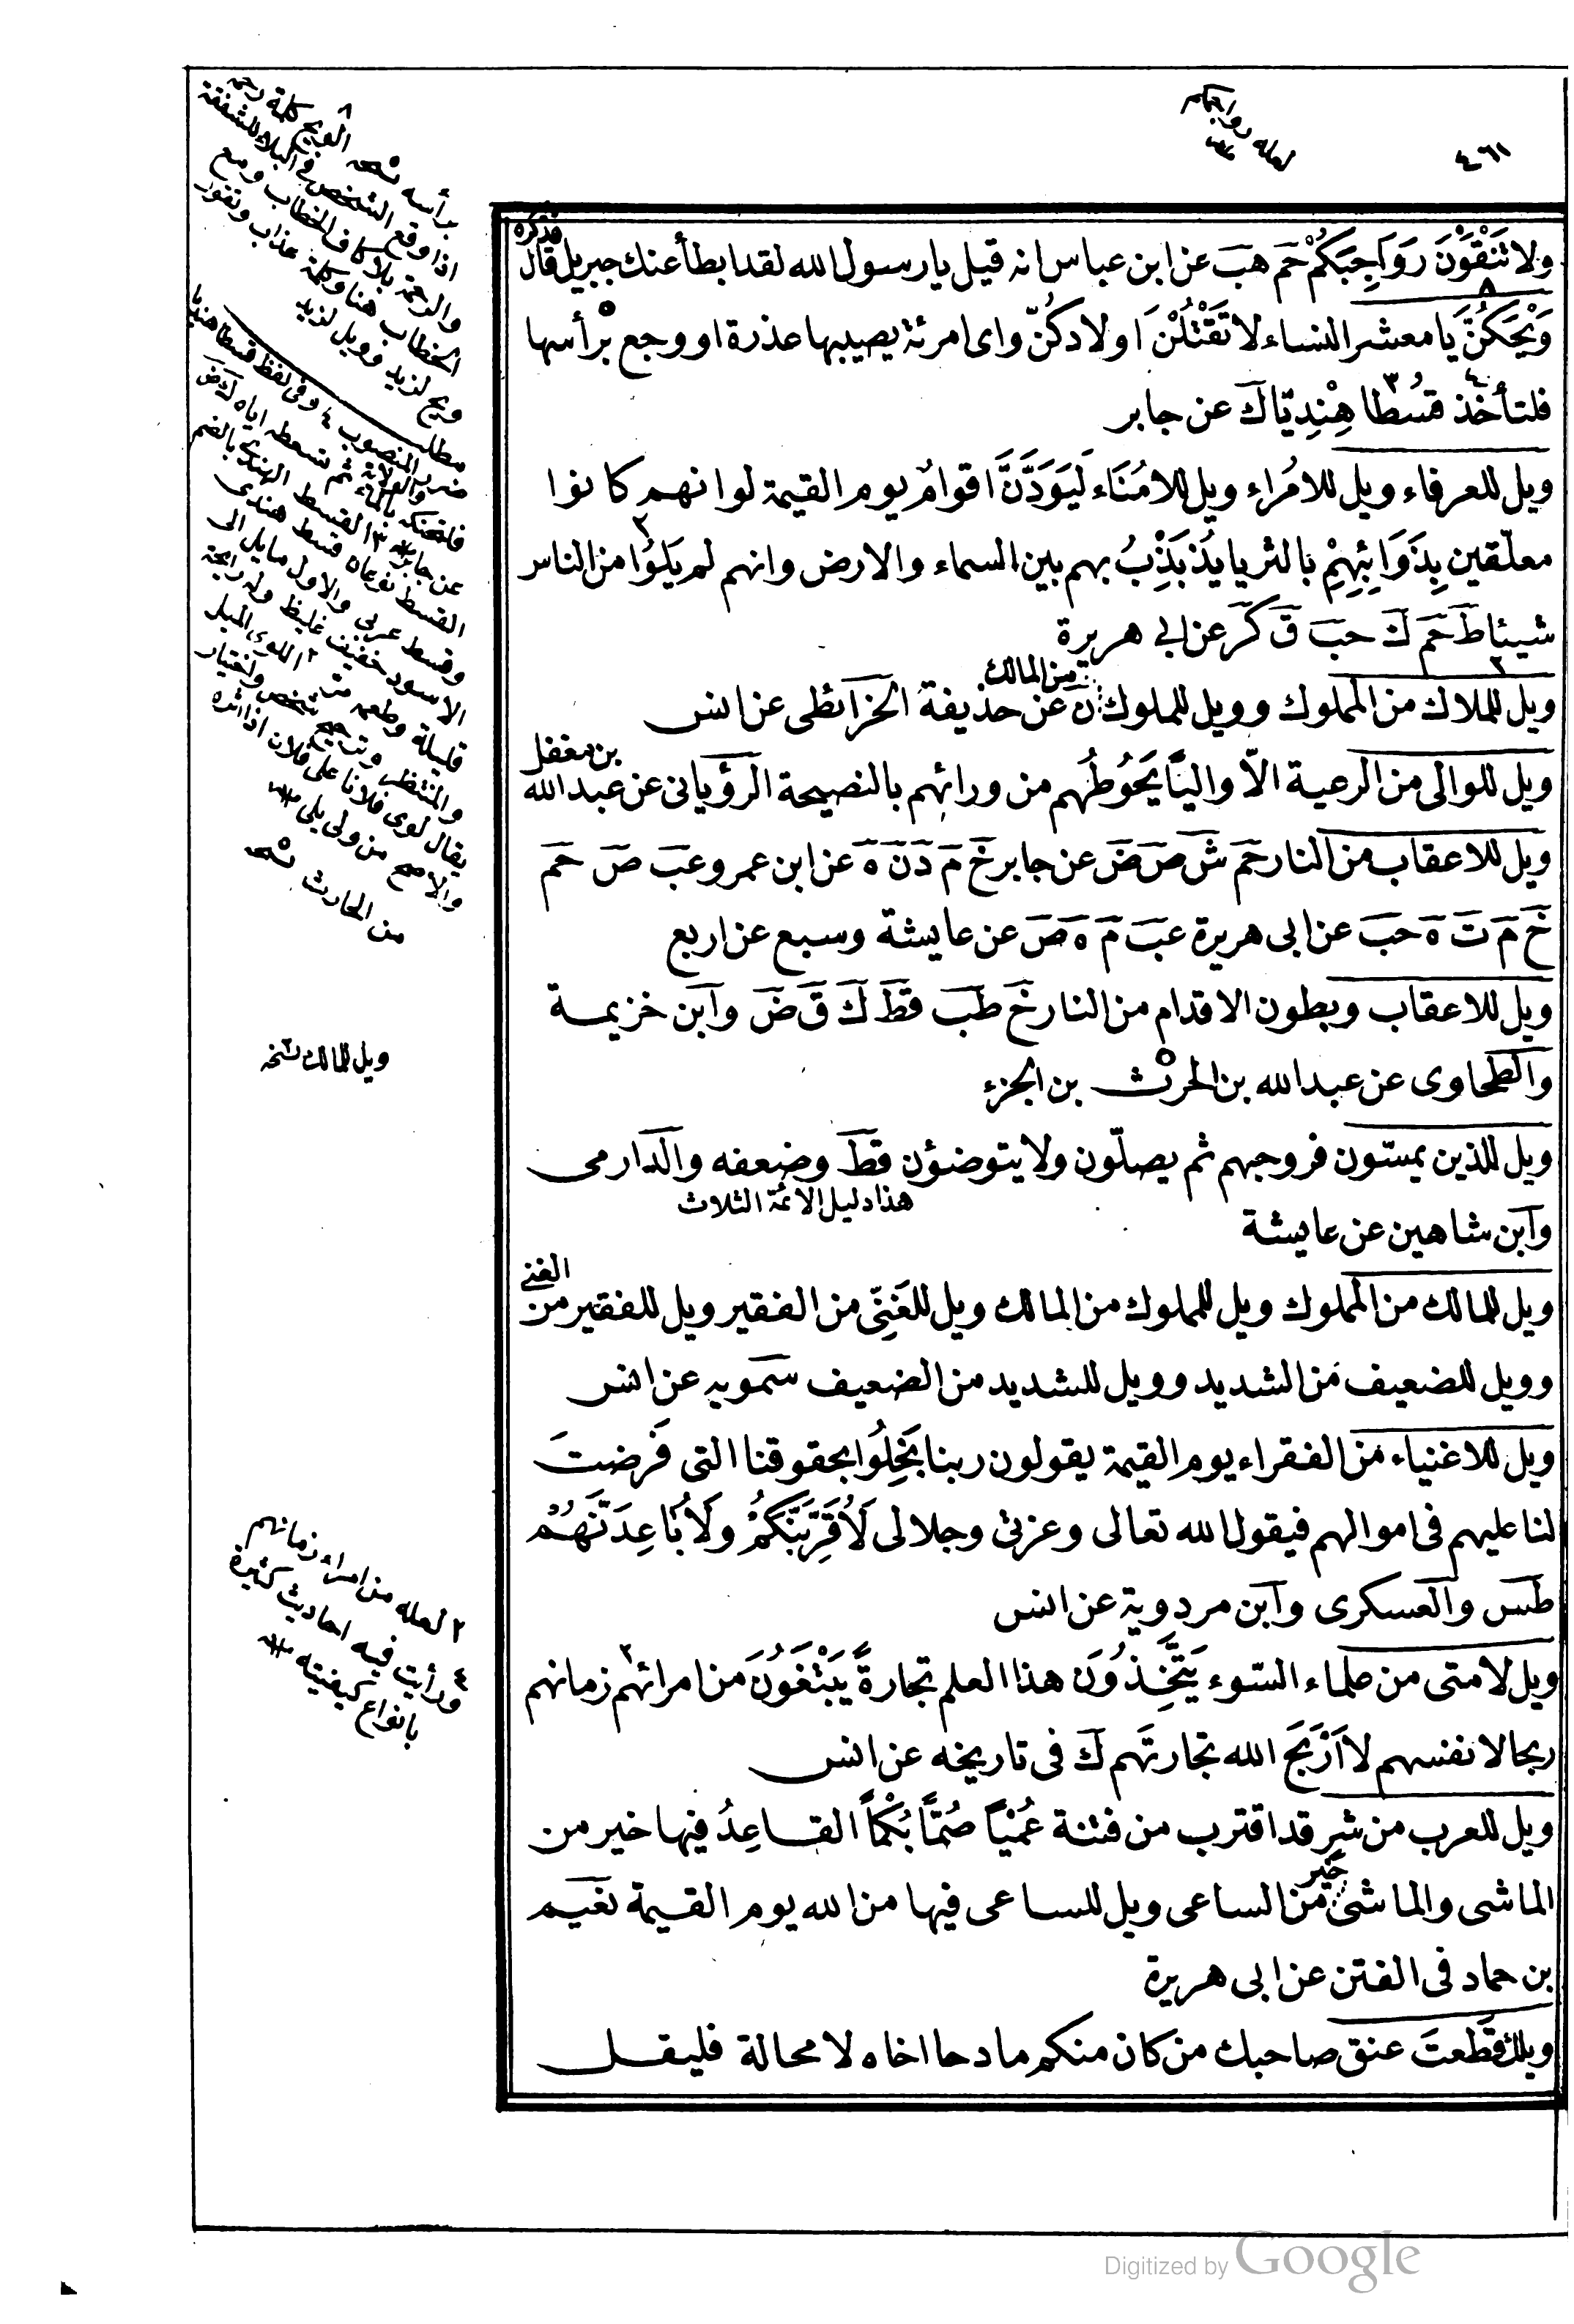 ٤٦١
لعله رواجبكم
ولا تنقون رَوَاجِبَكُمْ حَم هَب عن ابن عباس انه قيل يا رسول الله لقد ابطأ عنك جبريل قال فذكره
وَيْحَكُنَّ يَا معشر النساء لا تَقْتُلْنَ اولادكُنّ واى امرئة يصيبها عذرة او وجع برأسها
فلتأخذ قُسْطا هِنْدِيّا كَ عن جابر
ويل للعرفاء ويل للامُراء ويل للامُنَاء لَيَوَدَّنَّ اقوامٌ يوم القيمة لو انهم كانوا
معلّقين بِذَوَائِبِهِمْ بالثريا يُذَبْذَبُ بهم بين السماء والارض وانهم لم يَلُوا من الناس
شيئا طَ حَم كَ حبَ قَ كَرَ عن ابى هريرة
ويل للملاك من المملوك وويل للملوك من المالك ن عن حذيفة الخرائطى عن انس
ويل للوالى من الرعية الاّ واليًا يَحُوطُهم من ورائهم بالنصيحة الرؤيانى عن عبد الله بن مغفل
ويل للاعقاب من النار حَم شَ صَ ضَ عن جابر خَ مَ دَ نَ هَ عن ابن عمرو عبَ صَ حَم
خَ مَ تَ هَ حبَ عن ابى هريرة عبَ مَ هَ صَ عن عايشة وسبع عن اربع
ويل للاعقاب وبطون الاقدام من النار خَ طبَ قطَ كَ قَ ضَ وآبن خزيمة
والطحاوى عن عبد الله بن الحرث بن الجزء
ويل للذين يمسّون فروجهم ثم يصلّون ولا يتوضؤن قطَ وضعفه والدارمى
هذا دليل الائمة الثلاث
وآبن شاهين عن عايشة
ويل للمالك من المملوك ويل للمملوك من المالك ويل للغَنِىّ من الفقير ويل للفقير من الغنى
وويل للضعيف من الشديد وويل للشديد من الضعيف سَمويه عن انس
ويل للاغنياء من الفقراء يوم القيمة يقولون ربنا بَخِلُوا بحقوقنا التى فَرضتَ
لنا عليهم فى اموالهم فيقول الله تعالى وعزتى وجلالى لَاُقَرِّبَنَّكُمْ ولَاُبَاعِدَنَّهُمْ
طَس والعسكرى وآبن مردوية عن انس
ويل لامتى من علماء السّوء يَتَّخِذُونَ هذا العلم تجارةً يَبْتَغُونَ من امرائهم زمانهم
ربحا لانفسهم لا اَرْبَحَ الله تجارتَهم كَ فى تاريخه عن انس
ويل للعرب من شر قد اقترب من فتنة عُمْيًا صُمًّا بُكْمًا القاعِدُ فيها خير من
الماشى والماشى خير من الساعى ويل للساعى فيها من الله يوم القيمة نعَيم
بن حماد فى الفتن عن ابى هريرة
ويلك قَطَعتَ عنق صاحبك من كان منكم مادحا اخاه لا محالة فليقل
برأسه نسخه ٨ الويح كلمة رحمة
اذا وقع الشخص فى البلاء للشفقة
والرحمة بلا كاف الخطاب ومع
الخطاب هنا وكلمة عذاب وتقول
ويح لزيد وويل لزيد
مطلب
القسط نوعان قسط هندى
وقسط عربى والاول مايل الى
الاسود خفيف غليظ وله رايحة
قليلة وطعمه مر ٢ اللوى الميل
يقال لوى فلانا على فلان اذا اثره
والاصح من ولى يلى
من الحارث نسخه
ويل للمالك نسخه
٢ لعله من امراء زمانهم
٤ ورأيت فيه احاديث كثيرة
بانواع كيفيته
Digitized by Google